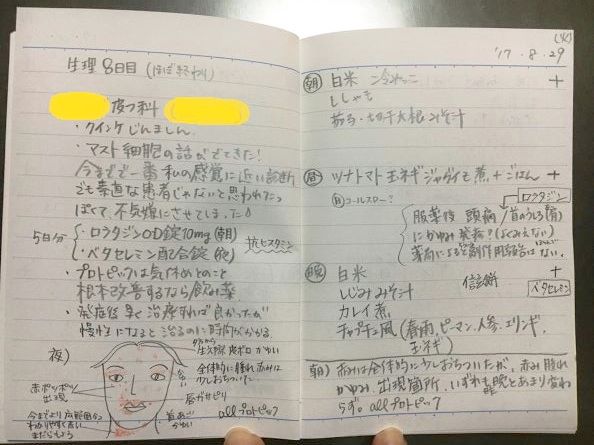 生理8日目(ほぼ終わり)
皮フ科
・クインケじんましん。
・マスト細胞の話がでてきた!
今までで一番私の感覚に近い診断
でも素直な患者じゃないと思われたっ
ぽくて、不気嫌にさせてしまった
5日分
・ロラタジンOD錠10mg(朝)
・ベタセレミン配合錠(夜)
抗ヒスタミン
・プロトピックは気休めとのこと
根本改善するなら飲み薬
・発症後早く治療すれば良かったが
慢性になると治るのに時間がかかる。
夜)
生え際 皮ポロ かゆい
全体的に腫れ赤みは
少しおちついてた
赤ポツポツ
出現
唇ガサピリ
首
かゆい
今までより広範囲で
わかりやすく赤い
まだらもよう
allプロトピック
(火)
'17.8.29
朝 白米 冷やっこ +
ししゃも
切干大根みそ汁
昼 ツナトマト玉ネギジャガイモ煮+ごはん +
コールスロー?
ロラタジン
服薬後 頭痛/首のうしろ(首)
にかゆみ発疹?(よくみえない)
薬局によると副作用報告はほとんどない。
晩 白米 +
しじみみそ汁 信玄餅 ベタセレミン
カレイ煮
チャプチェ風(春雨、ピーマン、人参、エリンギ、
玉ネギ)
朝)赤みは全体的に少しおちついたが、赤み腫れ
かゆみ、出現箇所、いずれも昨晩とあまり変わ
らず。allプロトピック